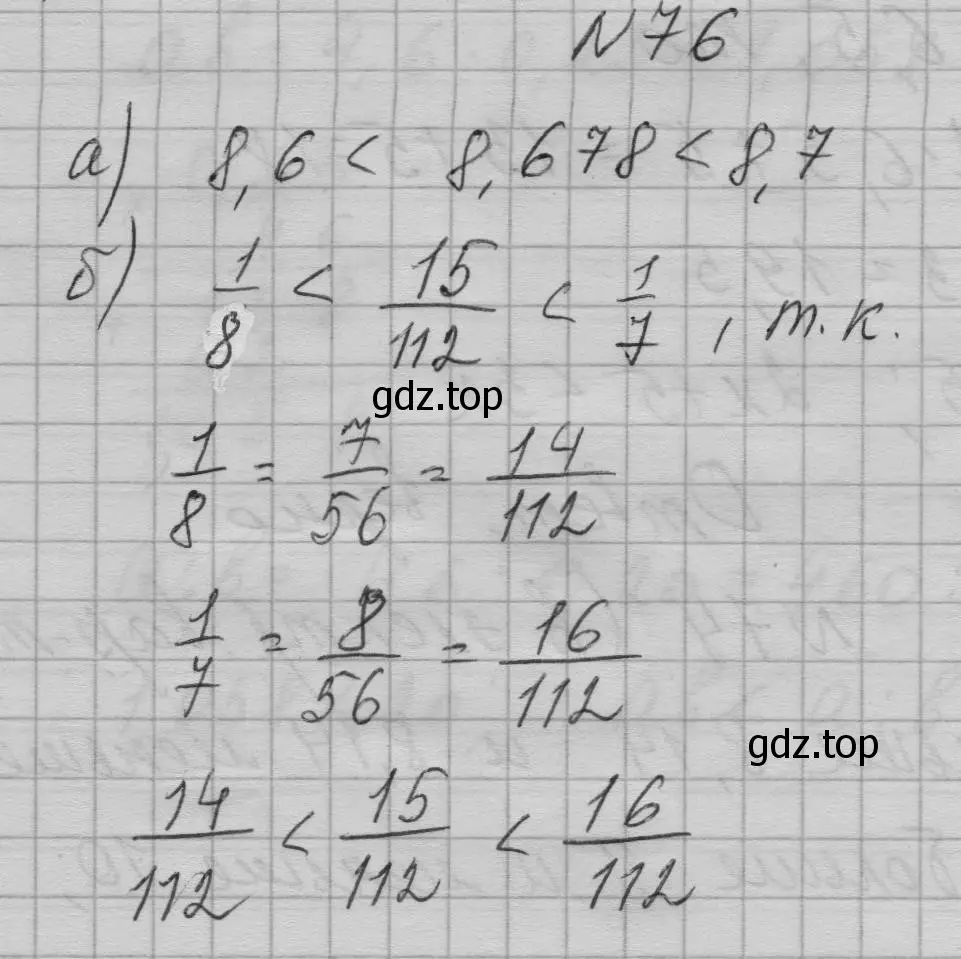 N 76
а) 8,6 < 8,678 < 8,7
б) 1/8 < 15/112 < 1/7, т.к.
gdz.top
1/8 = 7/56 = 14/112
1/7 = 8/56 = 16/112
gdz.top
14/112 < 15/112 < 16/112